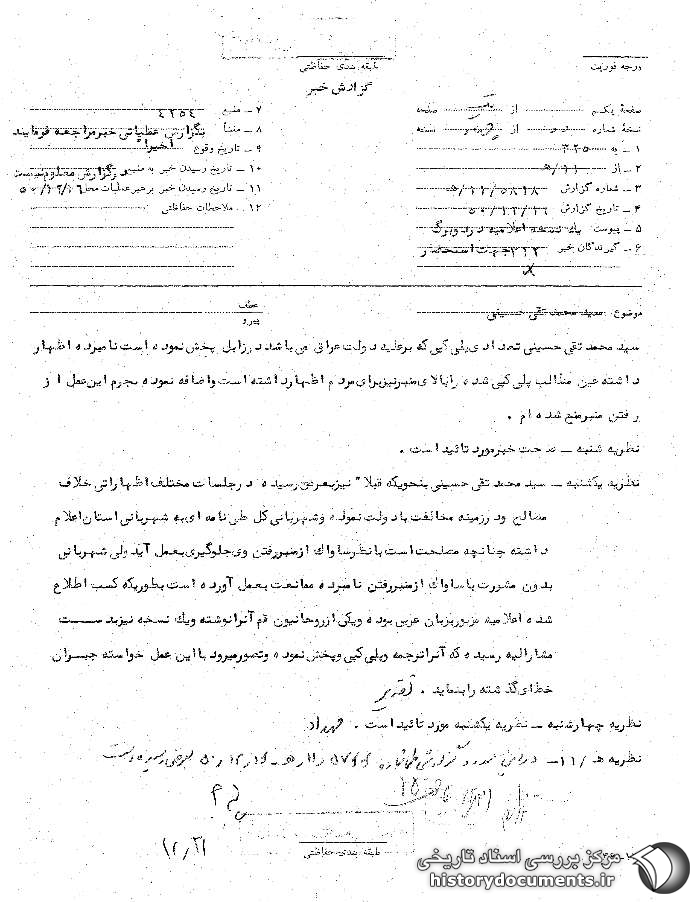 درجه فوریت
طبقه بندی حفاظتی
گزارش خبر
صفحه یکم از صفحه
نسخه شماره از نسخه
۱ ـ به ۳۲۵
۲ ـ از ۱۱/ﻫ
۳ ـ شماره گزارش ۵۸۱۸/۱۱ﻫ
۴ ـ تاریخ گزارش ۵۰/۱۲/۱۶
۵ ـ پیوست یک نسخه اعلامیه در دو برگ
۶ ـ گیرندگان خبر ۳۱۲ جهت استحضار
۷ ـ منبع ۴۲۵۴
۸ ـ منشأ بگزارش عملیاتی خبر مراجعه فرمایند
۹ ـ تاریخ وقوع اخیرا
۱۰ ـ تاریخ رسیدن خبر به منبع در گزارش معلوم نیست
۱۱ ـ تاریخ رسیدن خبر برهبر عملیات محل ۵۰/۱۲/۱۶
۱۲ ـ ملاحظات حفاظتی
موضوع : سید محمد تقی حسینی
عطف
پیرو
سید محمد تقی حسینی تعدادی پلی کپی که بر علیه دولت عراق می باشد در زابل پخش نموده است نامبرده اظهار
داشته عین مطالب پلی کپی شده را بالای منبر نیز برای مردم اظهار داشته است و اضافه نموده بجرم این عمل از
رفتن منبر منع شده ام .
نظریه شنبه ـ صحت خبر مورد تائید است .
نظریه یکشنبه ـ سید محمد تقی حسینی بنحویکه قبلا" نیز بعرض رسیده در جلسات مختلف اظهاراتی خلاف
مصالح و در زمینه مخالفت با دولت نموده و شهربانی کل طی نامه ای به شهربانی استان اعلام
داشته چنانچه مصلحت است با نظر ساواک از منبر رفتن وی جلوگیری بعمل آید ولی شهربانی
بدون مشورت با ساواک از منبر رفتن نامبرده ممانعت بعمل آورده است بطوریکه کسب اطلاع
شده اعلامیه مزبور بزبان عربی بوده و یکی از روحانیون قم آنرا نوشته و یک نسخه نیز بدست
مشارالیه رسیده که آنرا ترجمه و پلی کپی و پخش نموده و تصور میرود با این عمل خواسته جبران
خطای گذشته را بنماید .
نظریه چهارشنبه ـ نظریه یکشنبه مورد تائید است . مهرداد
نظریه ﻫ /۱۱ ـ
۱۲/۲۱
طبقه بندی حفاظتی
مرکز بررسی اسناد تاریخی
historydocuments.ir